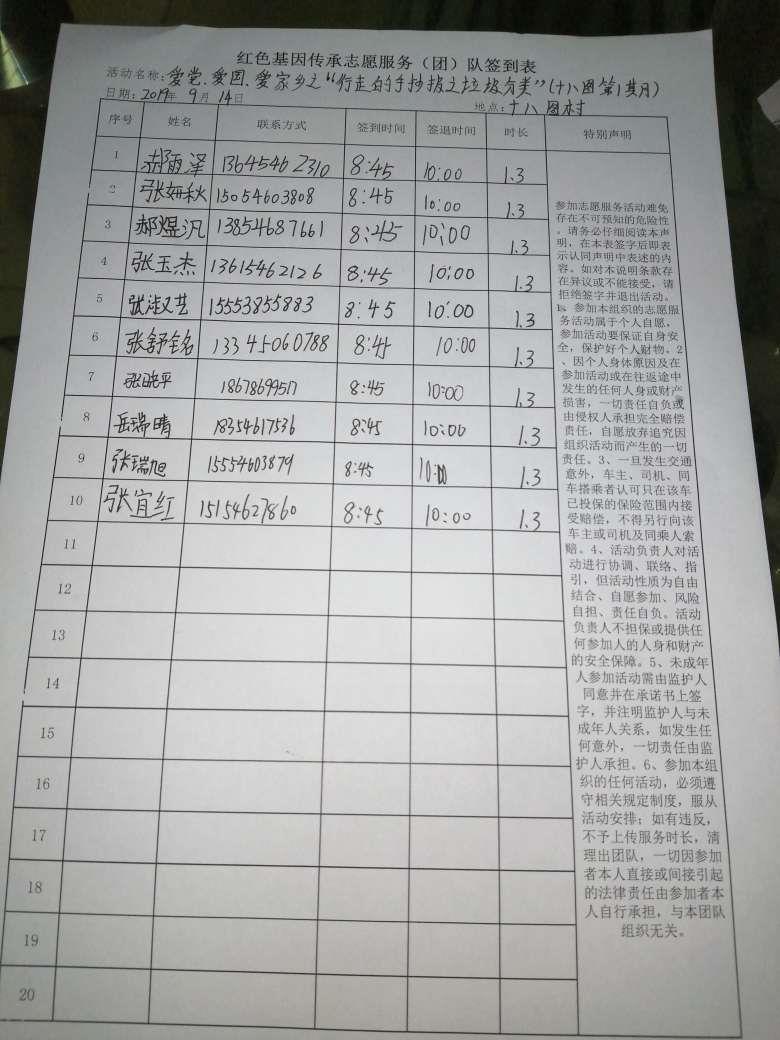 红色基因传承志愿服务（团）队签到表
活动名称：爱党、爱国、爱家乡之“行走的手抄报之垃圾分类”（十八图第1期）
日期：2019年 9月 14日 地点：十八图村
序号 姓名 联系方式 签到时间 签退时间 时长 特别声明
1 郝雨泽 13645462310 8:45 10:00 1.3
2 张妍秋 15054603808 8:45 10:00 1.3
3 郝煜汎 13854687661 8:45 10:00 1.3
4 张玉杰 13615462126 8:45 10:00 1.3
5 张 艺 15553855883 8:45 10:00 1.3
6 张舒铭 13345060788 8:45 10:00 1.3
7 张晓平 18678699517 8:45 10:00 1.3
8 岳瑞晴 18354617536 8:45 10:00 1.3
9 张瑞旭 15554603879 8:45 10:00 1.3
10 张宜红 15154627860 8:45 10:00 1.3
11
12
13
14
15
16
17
18
19
20
参加志愿服务活动难免
存在不可预知的危险性
，请务必仔细阅读本声
明，在本表签字后即表
示认同声明中表述的内
容。如对本说明条款存
在异议或不能接受，请
拒绝签字并退出活动。
1、参加本组织的志愿服
务活动属于个人自愿，
参加活动要保证自身安
全，保护好个人财物。2
、因个人身体原因及在
参加活动或在往返途中
发生的任何人身或财产
损害，一切责任自负或
由侵权人承担完全赔偿
责任，自愿放弃追究因
组织活动而产生的一切
责任。3、一旦发生交通
意外，车主、司机、同
车搭乘者认可只在该车
已投保的保险范围内接
受赔偿，不得另行向该
车主或司机及同乘人索
赔。4、活动负责人对活
动进行协调、联络、指
引，但活动性质为自由
结合、自愿参加、风险
自担、责任自负。活动
负责人不担保或提供任
何参加人的人身和财产
的安全保障。5、未成年
人参加活动需由监护人
同意并在承诺书上签
字，并注明监护人与未
成年人关系，如发生任
何意外，一切责任由监
护人承担。6、参加本组
织的任何活动，必须遵
守相关规定制度，服从
活动安排；如有违反，
不予上传服务时长，清
理出团队，一切因参加
者本人直接或间接引起
的法律责任由参加者本
人自行承担，与本团队
组织无关。